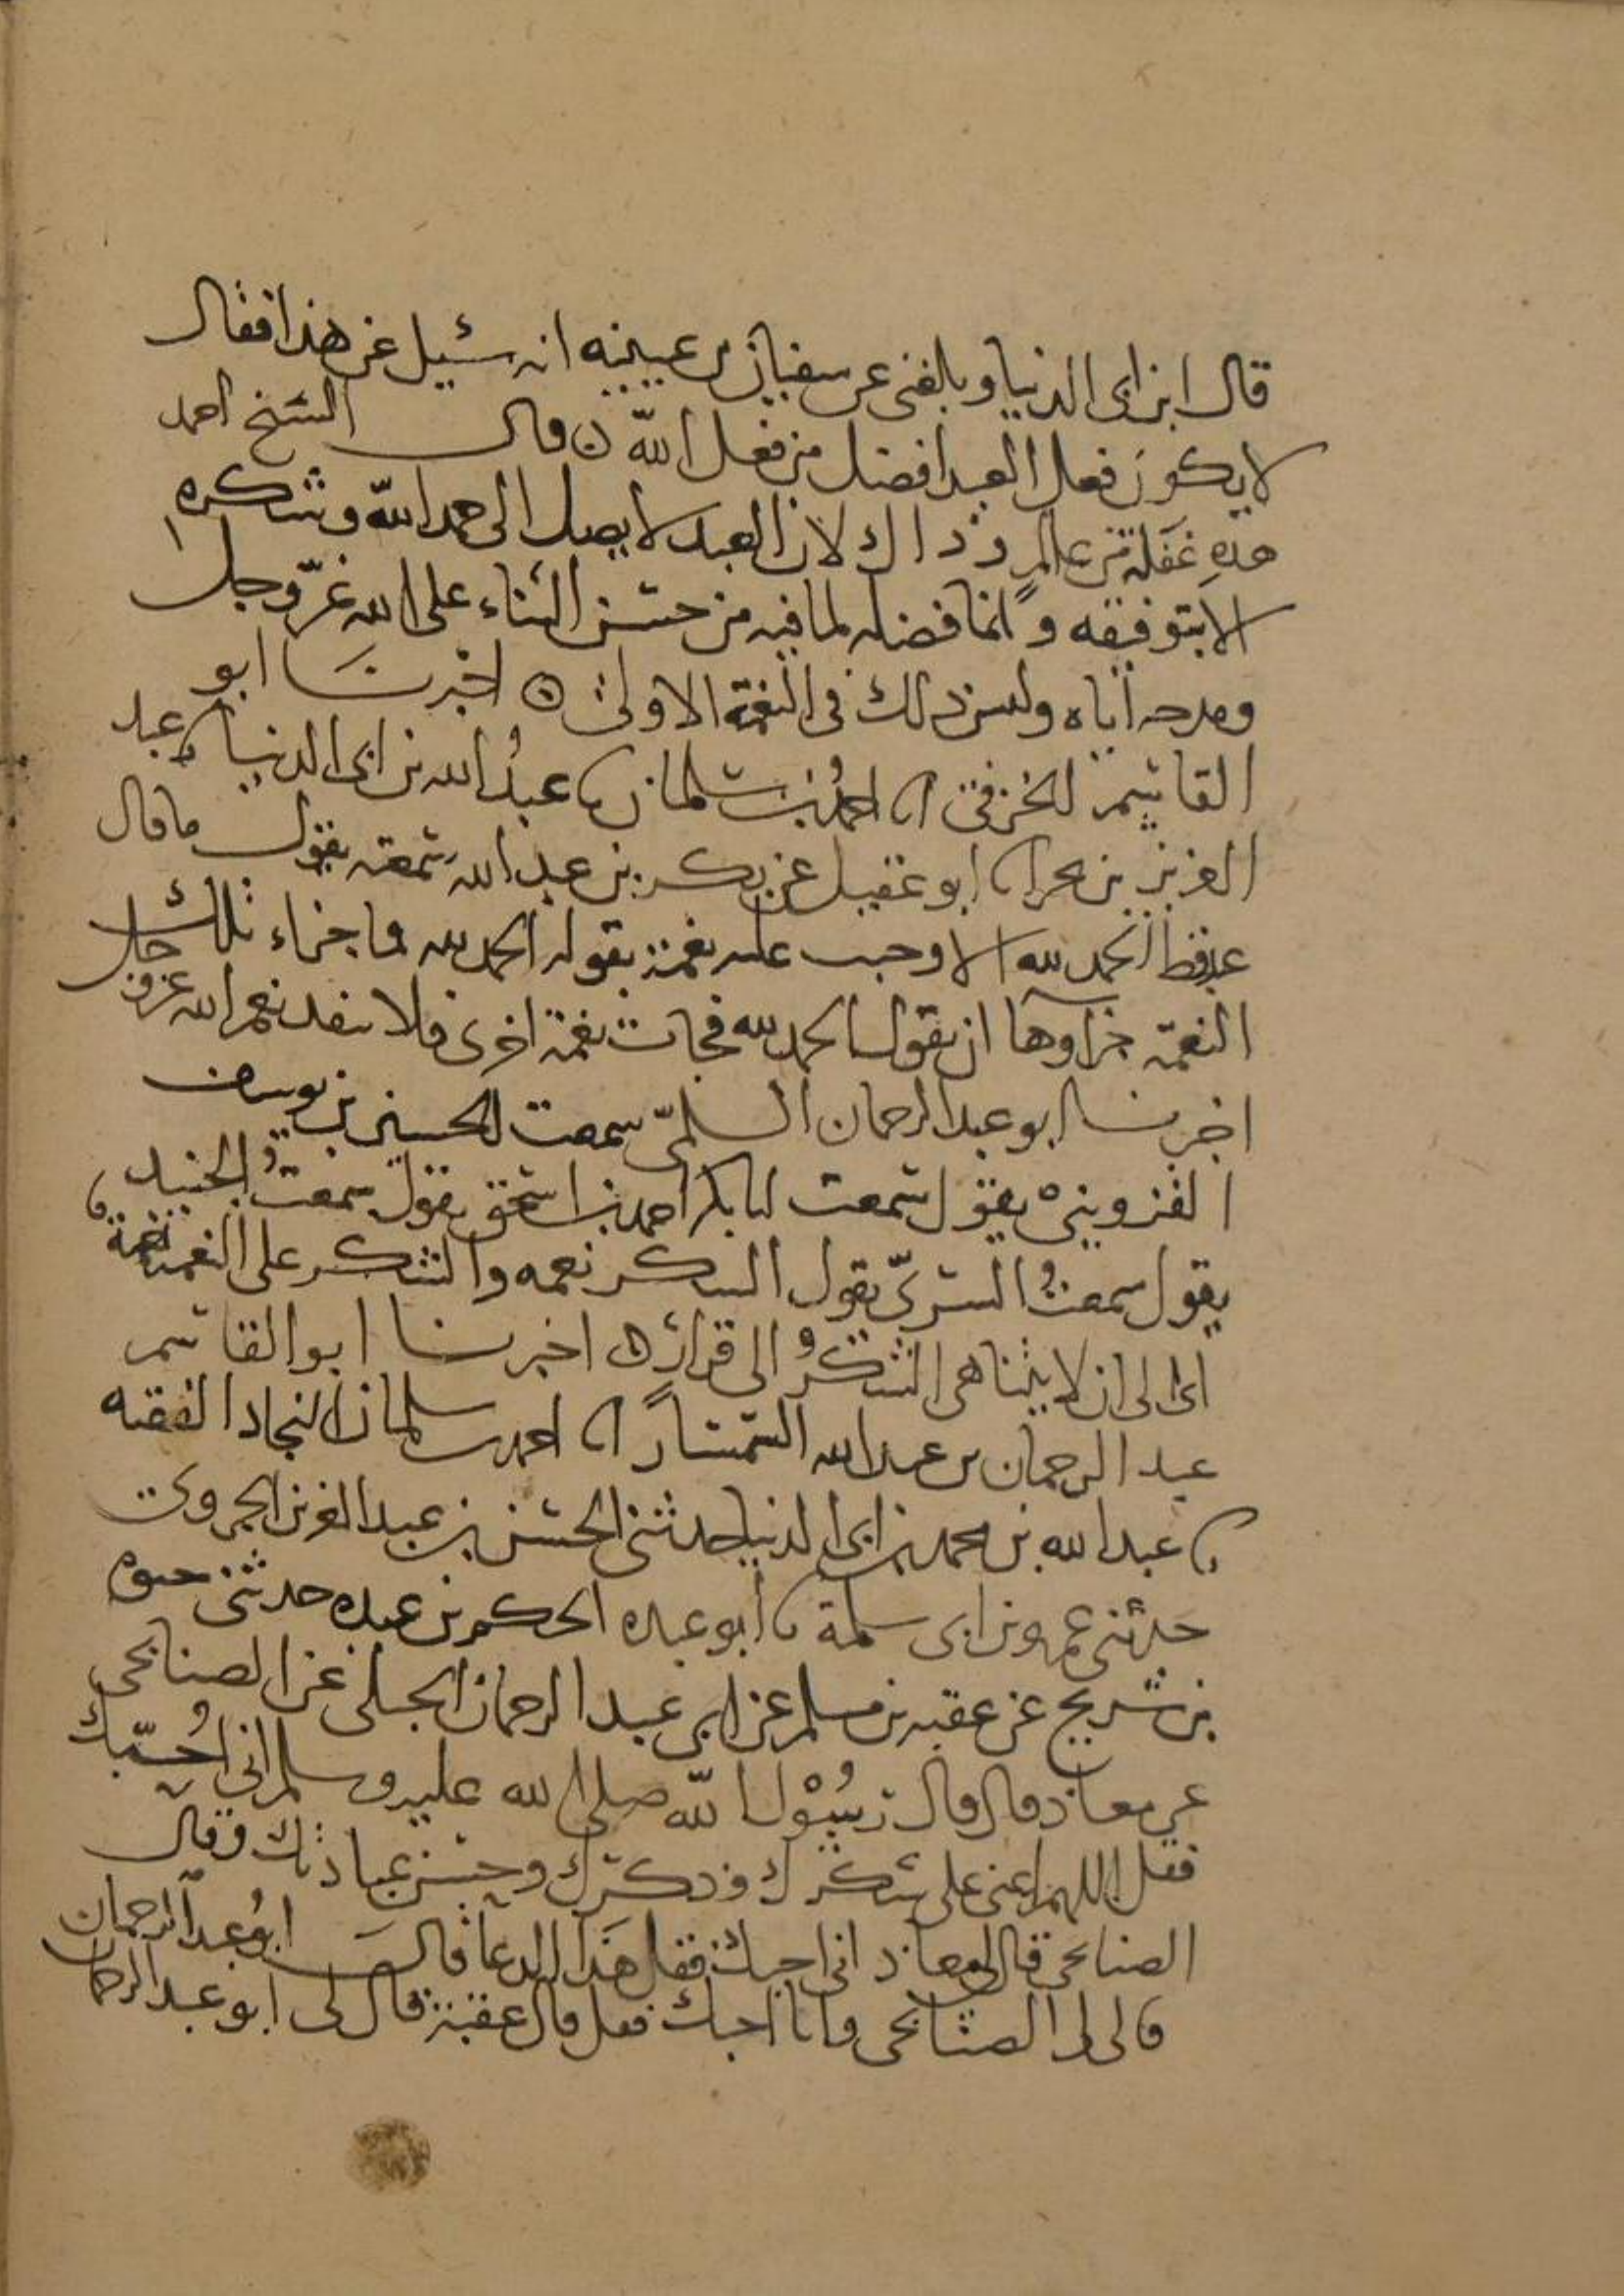 قال ابن ابى الدنيا وبلغنى عن سفيان بن عيينه انه سئيل عن هذا فقال
لا يكون فعل العبد افضل من فعل الله ن قال الشيخ احمد
هذه غفلة من عالم وذاك لان العبد لا يصل الى حمد الله وشكره
الا بتوفيقه وانما فضله لما فيه من حسن الثناء على الله عز وجل
ومدحه اياه وليس ذلك فى النعمة الاولى ه اخبرنا ابو
القاسم الخرقى انا احمد بن سلمان نا عبد الله بن ابى الدنيا نا عبد
العزيز بن بحر انا ابو عقيل عن بكر بن عبد الله سمعته يقول ما قال
عبد قط الحمد لله الا وجب عليه نعمة بقوله الحمد لله فما جزاء تلك
النعمة جزاوها ان يقول الحمد لله فجات نعمة اخرى فلا تنفد نعم الله عز وجل
اخبرنا ابو عبد الرحمان السلمى سمعت الحسين بن يوسف
القزوينى يقول سمعت ابا بكر احمد بن اسحق يقول سمعت الجنيد
يقول سمعت السرى يقول الشكر نعمه والشكر على النعمة نعمة
الى ان لا يتناهى الشكر الى قرار ه اخبرنا ابو القاسم
عبد الرحمان بن عبد الله السمسار انا احمد بن سلمان النجاد الفقيه
نا عبد الله بن محمد بن ابى الدنيا حدثنى الحسن بن عبد العزيز الجروى
حدثنى عمرو بن ابى سلمة نا ابو عبده الحكم بن عبده حدثنى حيوة
بن شريح عن عقبه بن مسلم عن ابى عبد الرحمان الجبلى عن الصنابحى
عن معاذ قال قال رسول الله صلى الله عليه وسلم انى احبك
فقل اللهم اعنى على شكرك وذكرك وحسن عبادتك وقال
الصنابحى قال لى معاذ انى احبك فقل هذا الدعا قال ابو عبد الرحمان
قال لى الصنابحى وانا احبك فقل قال عقبة قال لى ابو عبد الرحمان